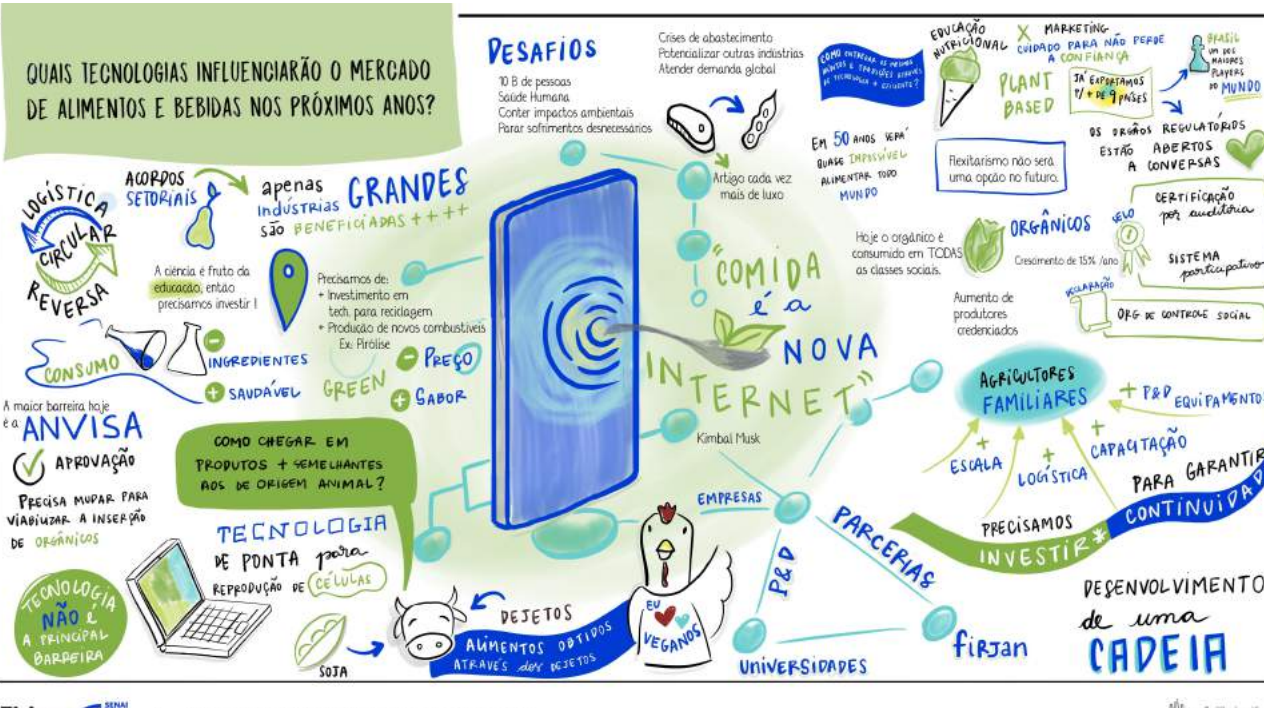 QUAIS TECNOLOGIAS INFLUENCIARÃO O MERCADO
DE ALIMENTOS E BEBIDAS NOS PRÓXIMOS ANOS?
LOGÍSTICA
CIRCULAR
REVERSA
ACORDOS
SETORIAIS
apenas
indústrias GRANDES
SÃO BENEFICIADAS ++++
A ciência é fruto da
educação, então
precisamos investir !
Precisamos de:
+ Investimento em
tech. para reciclagem
+ Produção de novos combustíveis
Ex: Pirólise
CONSUMO
- INGREDIENTES
+ SAUDÁVEL
GREEN
- PREÇO
+ SABOR
A maior barreira hoje
é a ANVISA
APROVAÇÃO
PRECISA MUDAR PARA
VIABILIZAR A INSERÇÃO
DE ORGÂNICOS
TECNOLOGIA
NÃO É
A PRINCIPAL
BARREIRA
COMO CHEGAR EM
PRODUTOS + SEMELHANTES
AOS DE ORIGEM ANIMAL?
TECNOLOGIA
DE PONTA para
REPRODUÇÃO DE CÉLULAS
SOJA
DEJETOS
ALIMENTOS OBTIDOS
ATRAVÉS dos DEJETOS
EU
VEGANOS
DESAFIOS
10 B de pessoas
Saúde Humana
Conter impactos ambientais
Parar sofrimentos desnecessários
Crises de abastecimento
Potencializar outras indústrias
Atender demanda global
Artigo cada vez
mais de luxo
"COMIDA
é a
NOVA
INTERNET"
Kimbal Musk
EM 50 ANOS SERÁ
QUASE IMPOSSÍVEL
ALIMENTAR TODO
MUNDO
EDUCAÇÃO
NUTRICIONAL
X MARKETING
CUIDADO PARA NÃO PERDE
A CONFIANÇA
PLANT
BASED
JÁ EXPORTAMOS
P/ + DE 9 PAÍSES
BRASIL
UM DOS
MAIORES
PLAYERS
DO MUNDO
OS ORGÃOS REGULATÓRIOS
ESTÃO ABERTOS
A CONVERSAS
Flexitarismo não será
uma opção no futuro.
Hoje o orgânico é
consumido em TODAS
as classes sociais.
ORGÂNICOS
Crescimento de 15% /ano
SELO
CERTIFICAÇÃO
por auditória
SISTEMA
participativo
DECLARAÇÃO
ORG DE CONTROLE SOCIAL
Aumento de
produtores
credenciados
AGRICULTORES
FAMILIARES
+ P&D EQUIPAMENTO
+ ESCALA
+ LOGÍSTICA
+ CAPACITAÇÃO
PRECISAMOS
INVESTIR*
PARA GARANTIR
CONTINUIDAD
EMPRESAS
P&D
PARCERIAS
UNIVERSIDADES
FIRJAN
DESENVOLVIMENTO
de uma
CADEIA
SENAI